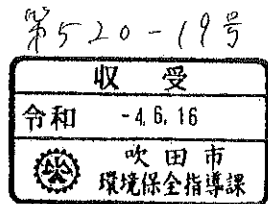 第520-19号
収受
令和 -4.6.16
吹田市
環境保全指導課